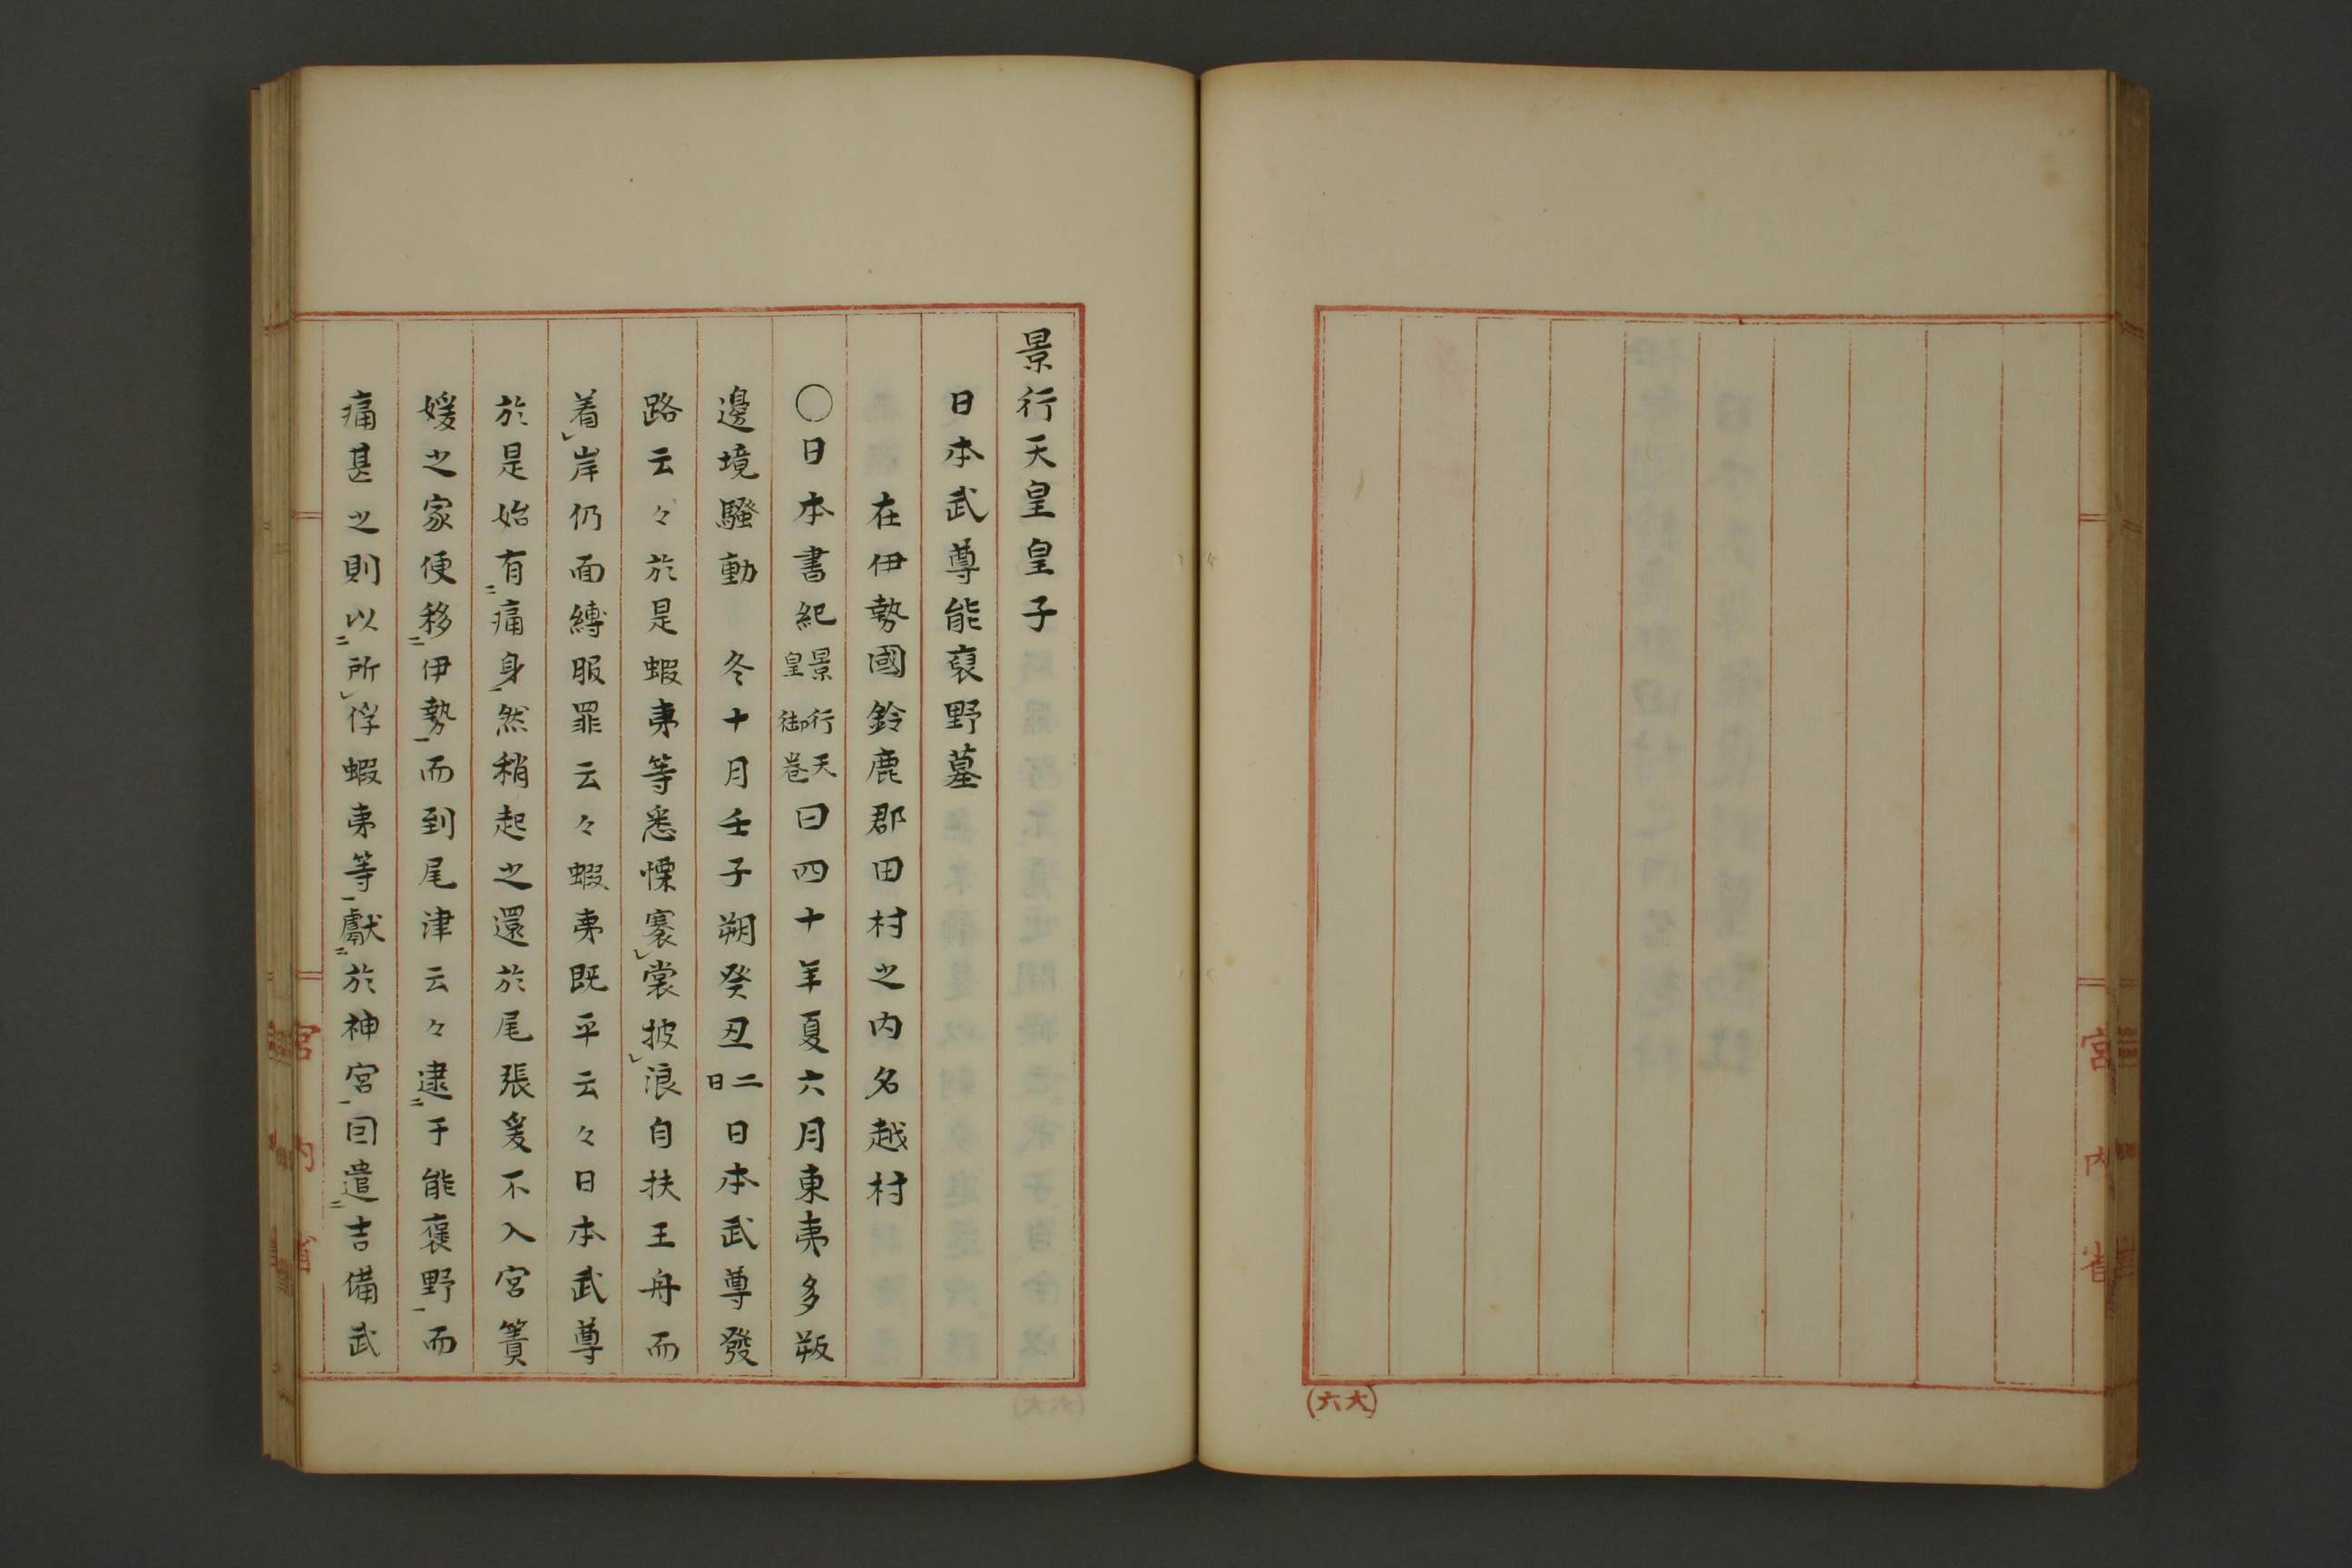 宮内省
(六大)
景行天皇皇子
日本武尊能裒野墓
在伊勢國鈴鹿郡田村之内名越村
〇日本書紀景行天皇御巻曰四十年夏六月東夷多叛
邊境騒動 冬十月壬子朔癸丑二日日本武尊發
路云々於是蝦夷等悉慄褰レ裳披レ浪自扶王舟而
着レ岸仍面縛服罪云々蝦夷既平云々日本武尊
於是始有二痛身一然稍起之還於尾張爰不入宮簀
媛之家便移二伊勢一而到尾津云々逮二于能褒野一而
痛甚之則以二所レ俘蝦夷等一獻二於神宮一因遣二吉備武
宮内省